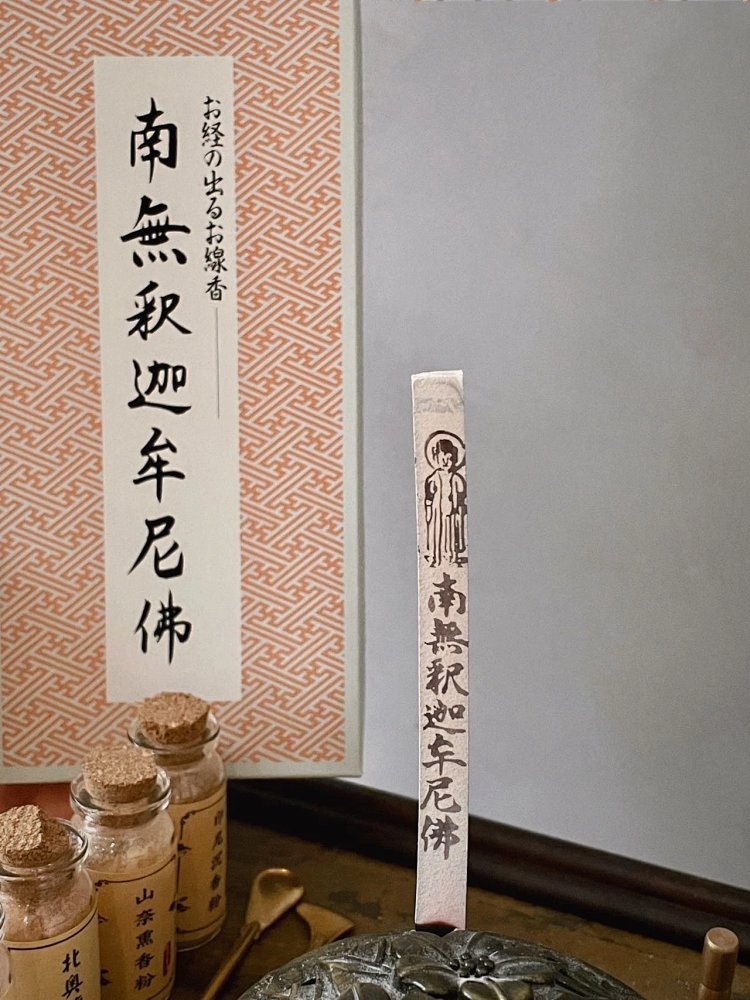 お経の出るお線香
南無釈迦牟尼佛
南無釈迦牟尼佛
印尼沉香粉
山奈薰香粉
北與